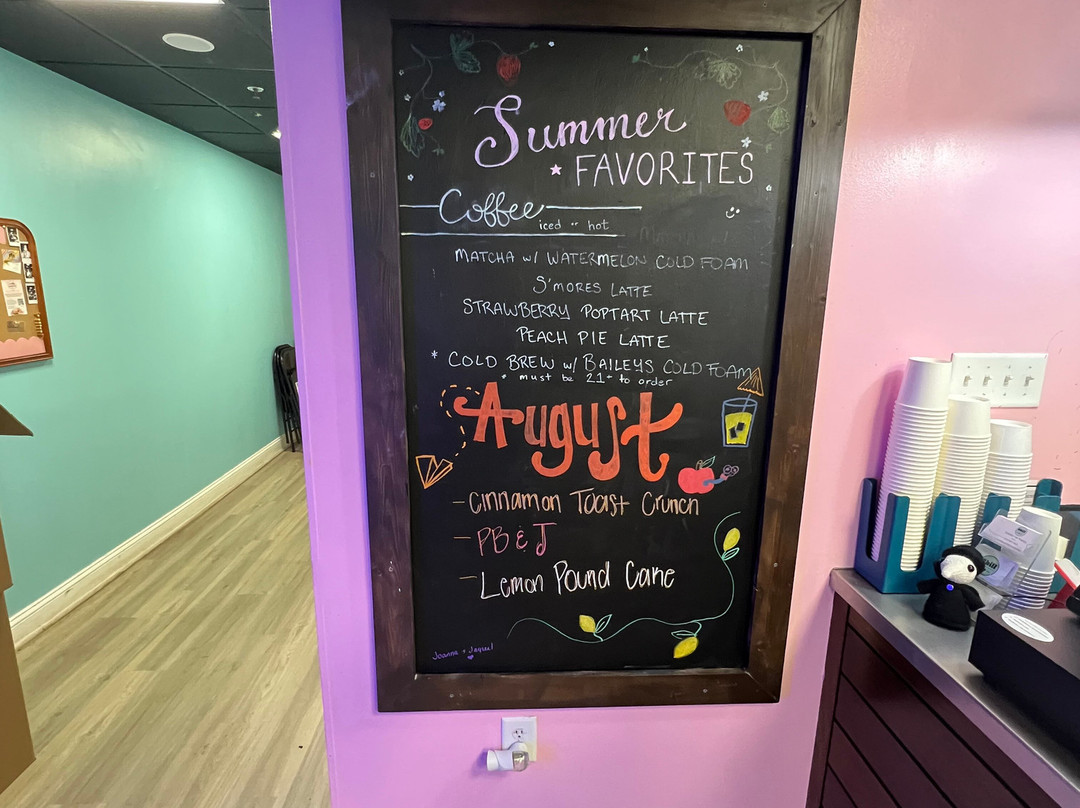 Summer
FAVORITES
Coffee
iced or hot
MATCHA W/ WATERMELON COLD FOAM
S'MORES LATTE
STRAWBERRY POPTART LATTE
PEACH PIE LATTE
* COLD BREW W/ BAILEYS COLD FOAM
* must be 21+ to order
August
- Cinnamon Toast Crunch
- PB & J
- Lemon Pound Cake